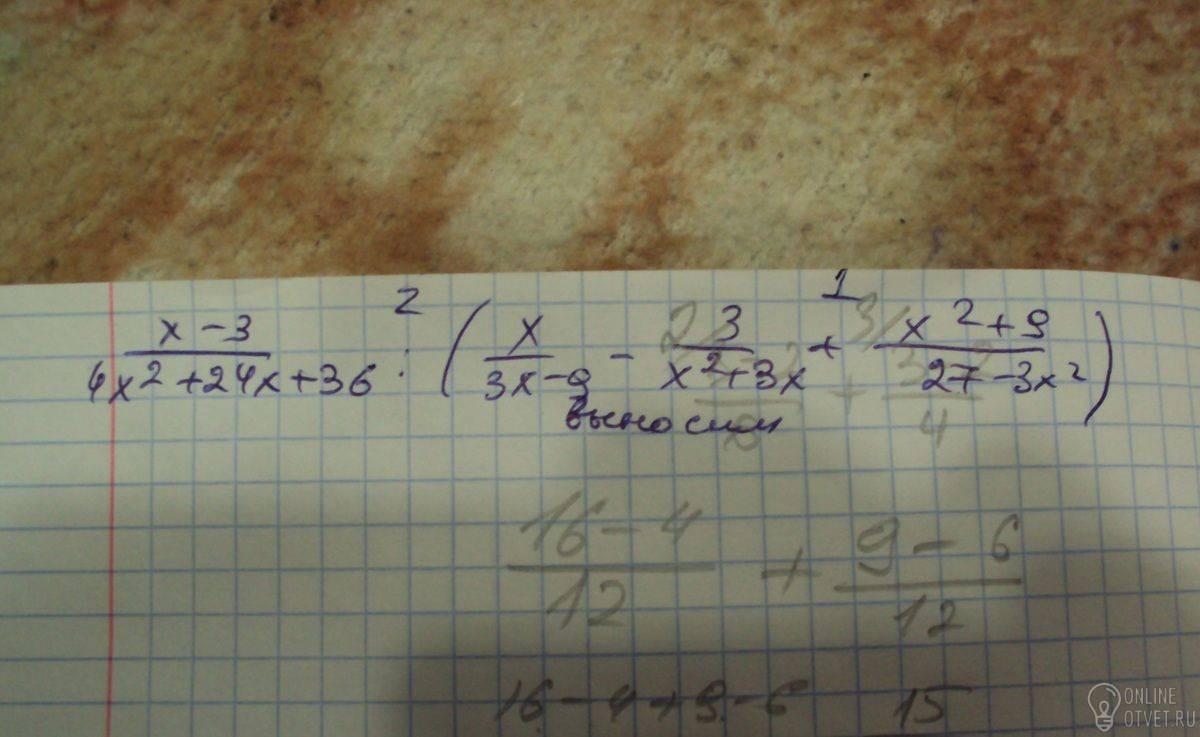 2 1
x - 3 / 4x² + 24x + 36 : ( x / 3x - 9 - 3 / x² + 3x + x² + 9 / 27 - 3x² )
выносим
4
16 - 4 / 12 + 9 - 6 / 12
16 - 4 + 9 - 6 15
ONLINE
OTVET.RU